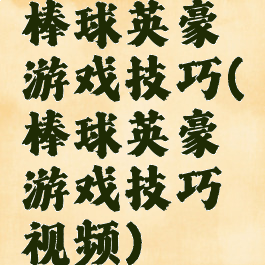 棒球英豪
游戏技巧(
棒球英豪
游戏技巧
视频)